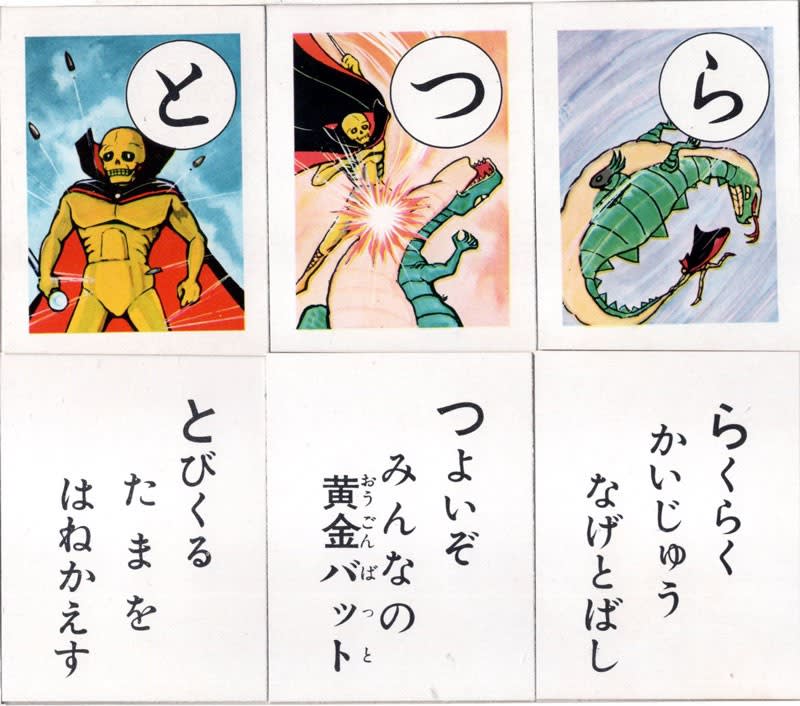 と
つ
ら
とびくる
たまを
はねかえす
つよいぞ
みんなの
黄金バット
おうごんばっと
らくらく
かいじゅう
なげとばし